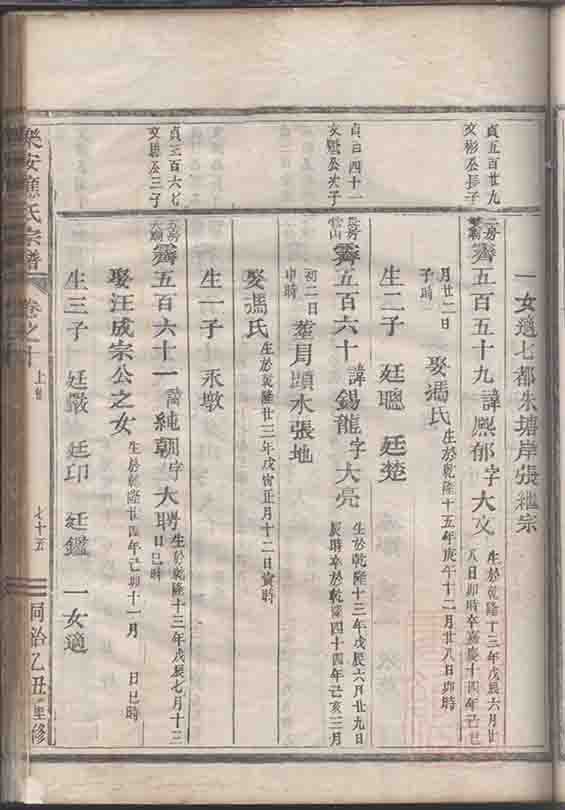 貞五百廿九
文彬公長子
貞百四十一
文 公次子
貞三百六七
文 公三子
一女適七都朱塘岸張繼宗
霽五百五十九 諱熙郁 字大文 生於乾隆十三年戊辰六月廿
八日卯時卒嘉慶十四年己巳
月廿二日
子時 娶馮氏 生於乾隆十五年庚午十二月廿八日卯時
生二子 廷聰 廷楚
霽五百六十 諱錫龍 字大亮 生於乾隆十三年戊辰六月廿九日
辰時卒於乾隆四十四年己亥三月
初二日
申時 葬 水張地
娶馮氏 生於乾隆廿三年戊寅正月十二日寅時
生一子 永墩
霽五百六十一 諱純朝 字大聘 生於乾隆十三年戊辰七月十三
日巳時
娶汪成宗公之女 生於乾隆廿四年己卯十一月 日巳時
生三子 廷嚴 廷印 廷鑑 一女適
樂安 氏宗譜 卷之十 上 七十五 同治乙丑重修